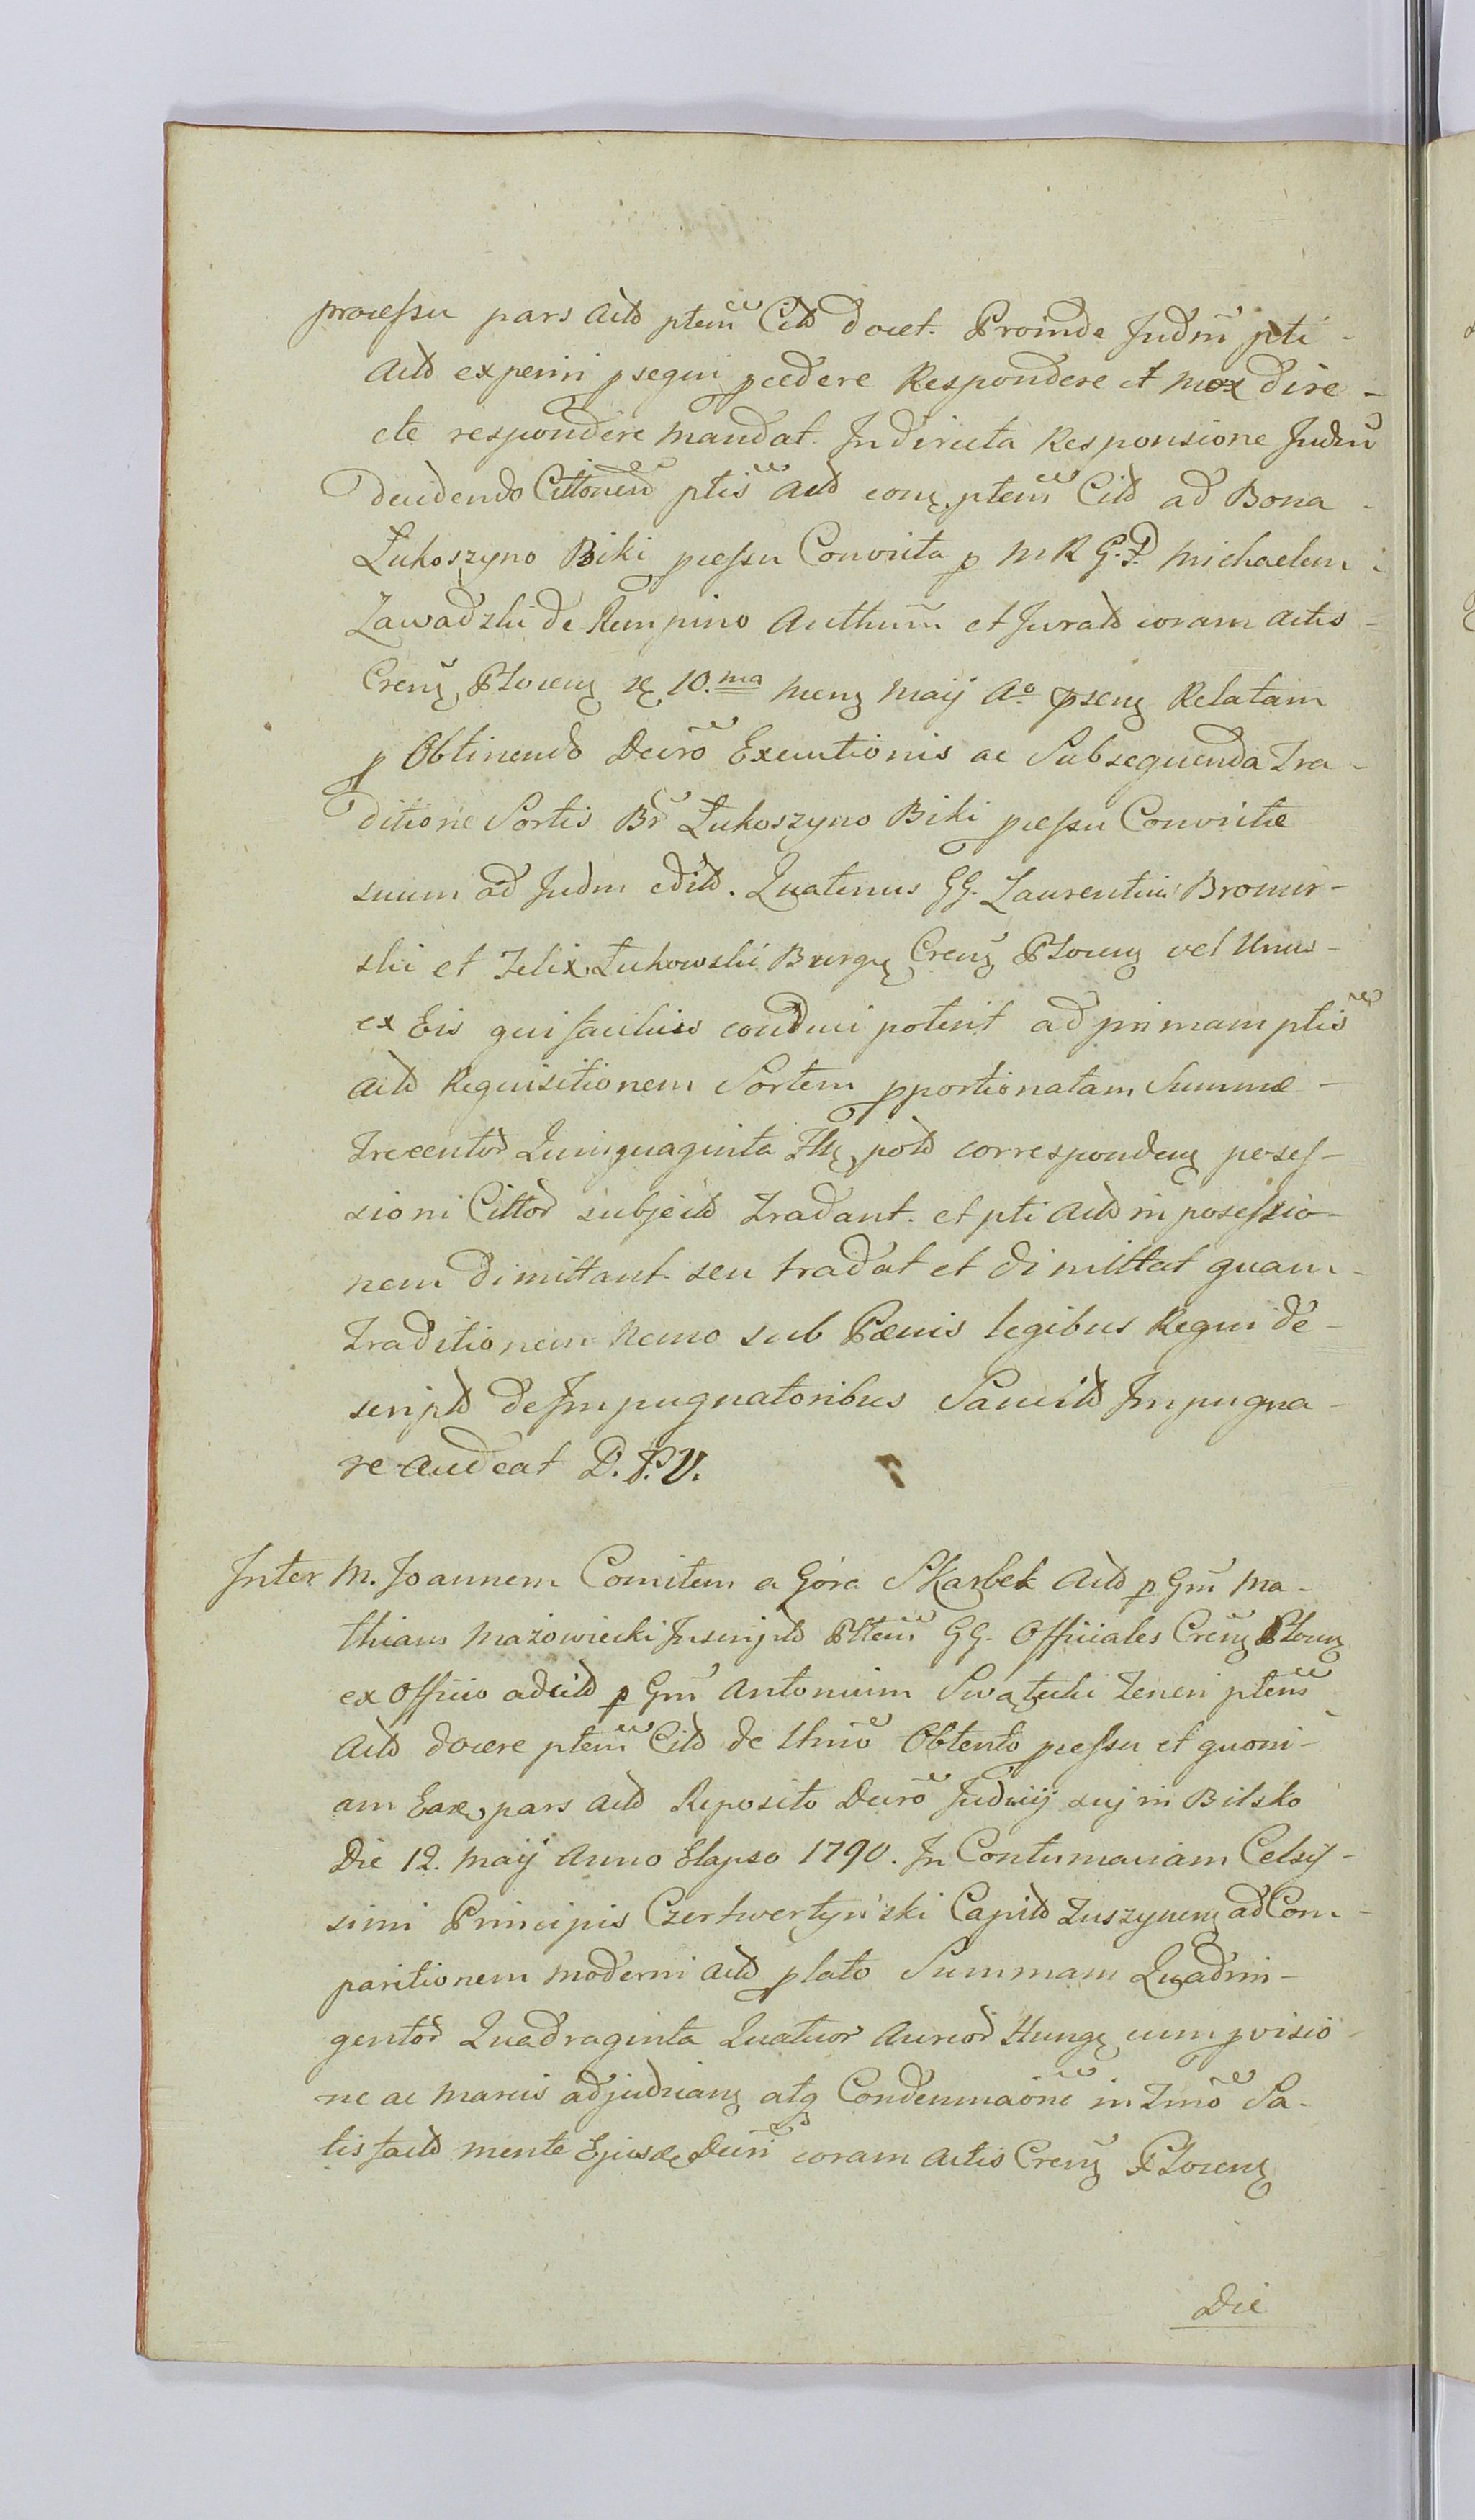 processu pars Actõ ptem̃ Citõ docet. Proinde Judm̃ pti -
Actõ experiri psequi pcedere Respondere et mox dire -
cte respondere mandat. In directa Responsione Judm̃
Decidendo Cittonem̃ ptis Actõ conꝫ ptem̃ Citõ ad Bona -
Łukoszyno Biki pcessu Convicta p M R G. D Michaelem
Zawadzki de Rempino Authum̃ et Juratõ coram Actis -
Crenꝫ Plocenꝫ 10.ma menꝫ Maij A.o psenꝫ Relatam
p Obtinendo Decrõ Executionis ac Subsequenda Tra -
ditione Sortis Br̃ Łukoszyno Biki pcessu Convictæ
suum ad Judm editõ. Quatenus GG. Laurentius Bromir -
ski et Felix Łukowski Burgꝫ Crenꝫ Plocenꝫ vel Unus -
ex Eis qui facilius conduci poterit ad primam ptis
Actõ Requisitionem Sortem pportionatam Summæ -
Trecentõ Quinquaginta Flꝫ polõ correspondenꝫ posses -
sioni Cittõ subjectõ Tradant. et pti Actõ in possessio -
nem dimittant seu tradat et dimittat quam -
Traditionem Nemo sub Pœnis legibus Regni de -
scriptõ de Impugnatoribus Sancitõ Impugna -
re audeat D. P. V.
Inter M. Joannem Comitem a Góra Skarbek Actõ p Gm̃ Ma -
thiam Mazowiecki Inscriptõ Pltem̃ GG. Officiales Crenꝫ Plocenꝫ
ex Officio adcitõ p Gm̃ Antonium Swątecki Teneri ptem̃
Actõ docere ptem̃ Citõ de Umõ Obtento pcessu et quoni -
am Eaꝫ pars Actõ Reposito Decrõ Judicij suj in Bilsko
Die 12. Maij Anno Elapso 1790. In Contumaciam Celsis -
simi Principis Czertwertyński Capitõ Tuszynenꝫ ad Com -
paritionem moderni Actõ plato Summam Quadrin -
gentõ Quadraginta Quatuor Aureõ Hungꝫ cum pvisio -
ne ac Marcis adjudicanꝫ atq Condemnaõne in Tmõ Sa -
tisfactõ mente Ejusꝫ Decri coram Actis Crenꝫ Plocenꝫ
Die